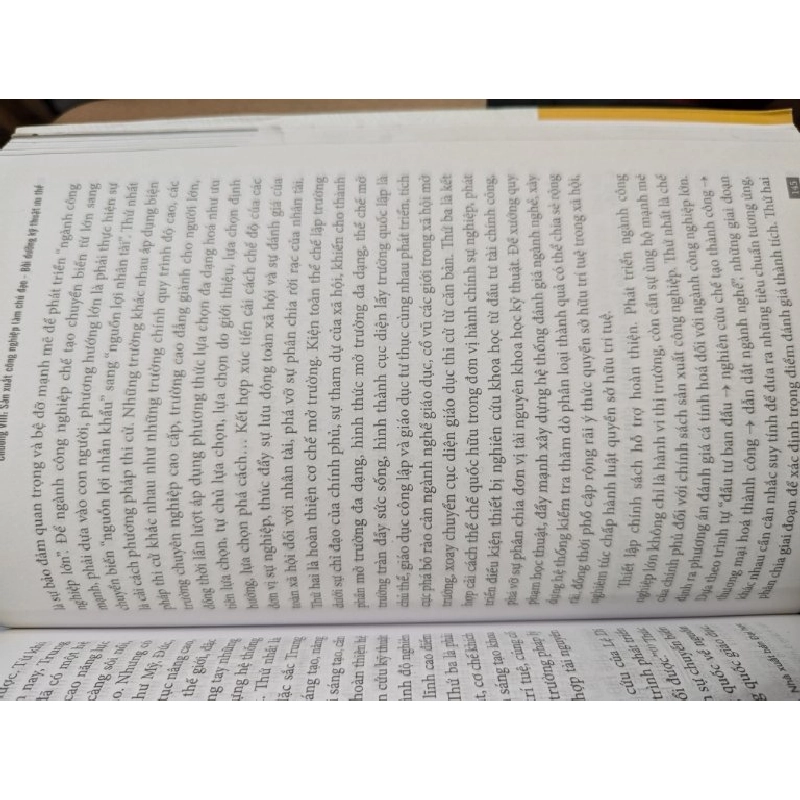 n nay, Trung
cao năng
càng sôi nổi,
hư Mỹ, Đức,
tục nâng cao
thế giới,
ng tay những
ựng hệ thống
t. Thứ nhất là
ặc sắc Trung
áng tạo, năng
i sáng tạo, cải
hoàn thiện hệ
n cứu kỹ thuật
ình độ nghiên
lĩnh cao điểm
Thứ ba là phải
t, cơ chế khích
sáng tạo khoa
trí tuệ, cung cố
trường pháp lý
hợp tài nguyên
cứu của Lê Di
Chương VIII: Sản xuất công nghiệp làm chủ đạo - Bồi dưỡng kỹ thuật ưu thế
là sự bảo đảm quan trọng và bệ đỡ mạnh mẽ để phát triển "ngành công
nghiệp lớn". Để ngành công nghiệp chế tạo chuyển biến từ lớn sang
mạnh, phải dựa vào con người, phương hướng lớn là phải thực hiện sự
chuyển biến "nguồn lợi nhân khẩu" sang "nguồn lợi nhân tài". Thứ nhất
là cải cách phương pháp thi cử. Những trường khác nhau áp dụng biện
pháp thi cử khác nhau như những trường chính quy trình độ cao, các
trường chuyên nghiệp cao cấp, trường cao đẳng giành cho người lớn,
đồng thời lần lượt áp dụng phương thức lựa chọn đa dạng hoá như ưu
tiên lựa chọn, tự chủ lựa chọn, lựa chọn do giới thiệu, lựa chọn định
hướng, lựa chọn phá cách… Kết hợp xúc tiến cải cách chế độ của các
đơn vị sự nghiệp, thúc đẩy sự lưu động toàn xã hội và sự đánh giá của
toàn xã hội đối với nhân tài, phá vỡ sự phân chia rời rạc của nhân tài.
Thứ hai là hoàn thiện cơ chế mở trường. Kiện toàn thể chế lập trường
dưới sự chỉ đạo của chính phủ, sự tham dự của xã hội, khiến cho thành
phần mở trường đa dạng, hình thức mở trường đa dạng, thể chế mở
trường tràn đầy sức sống, hình thành cục diện lấy trường quốc lập là
chủ thể, giáo dục công lập và giáo dục tư thục cùng nhau phát triển, tích
cực phá bỏ rào cản ngành nghề giáo dục, cổ vũ các giới trong xã hội mở
trường, xoay chuyển cục diện giáo dục thi cử từ căn bản. Thứ ba là kết
hợp cải cách thể chế quốc hữu trong đơn vị hành chính sự nghiệp, phát
triển điều kiện thiết bị nghiên cứu khoa học từ đầu tư tài chính công,
phá vỡ sự phân chia đơn vị tài nguyên khoa học kỹ thuật. Đề xướng quy
phạm học thuật, đẩy mạnh xây dựng hệ thống đánh giá ngành nghề, xây
dựng hệ thống kiểm tra thăm dò phân loại thành quả có thể chia sẻ rộng
rãi, đồng thời phổ cập rộng rãi ý thức quyền sở hữu trí tuệ trong xã hội,
nghiêm túc chấp hành luật quyền sở hữu trí tuệ.
Thiết lập chính sách hỗ trợ hoàn thiện. Phát triển ngành công
nghiệp lớn không chỉ là hành vi thị trường, còn cần sự ủng hộ mạnh mẽ
của chính phủ đối với chính sách sản xuất công nghiệp. Thứ nhất là chế
định ra phương án đánh giá cá tính hoá đối với ngành công nghiệp lớn.
Dựa theo trình tự "đầu tư ban đầu → nghiên cứu chế tạo thành công →
thương mại hoá thành công → dẫn dắt ngành nghề", những giai đoạn
khác nhau cần cân nhắc suy tính để đưa ra những tiêu chuẩn tương ứng,
phân chia giai đoạn để xác định trọng điểm đánh giá thành tích. Thứ hai
145